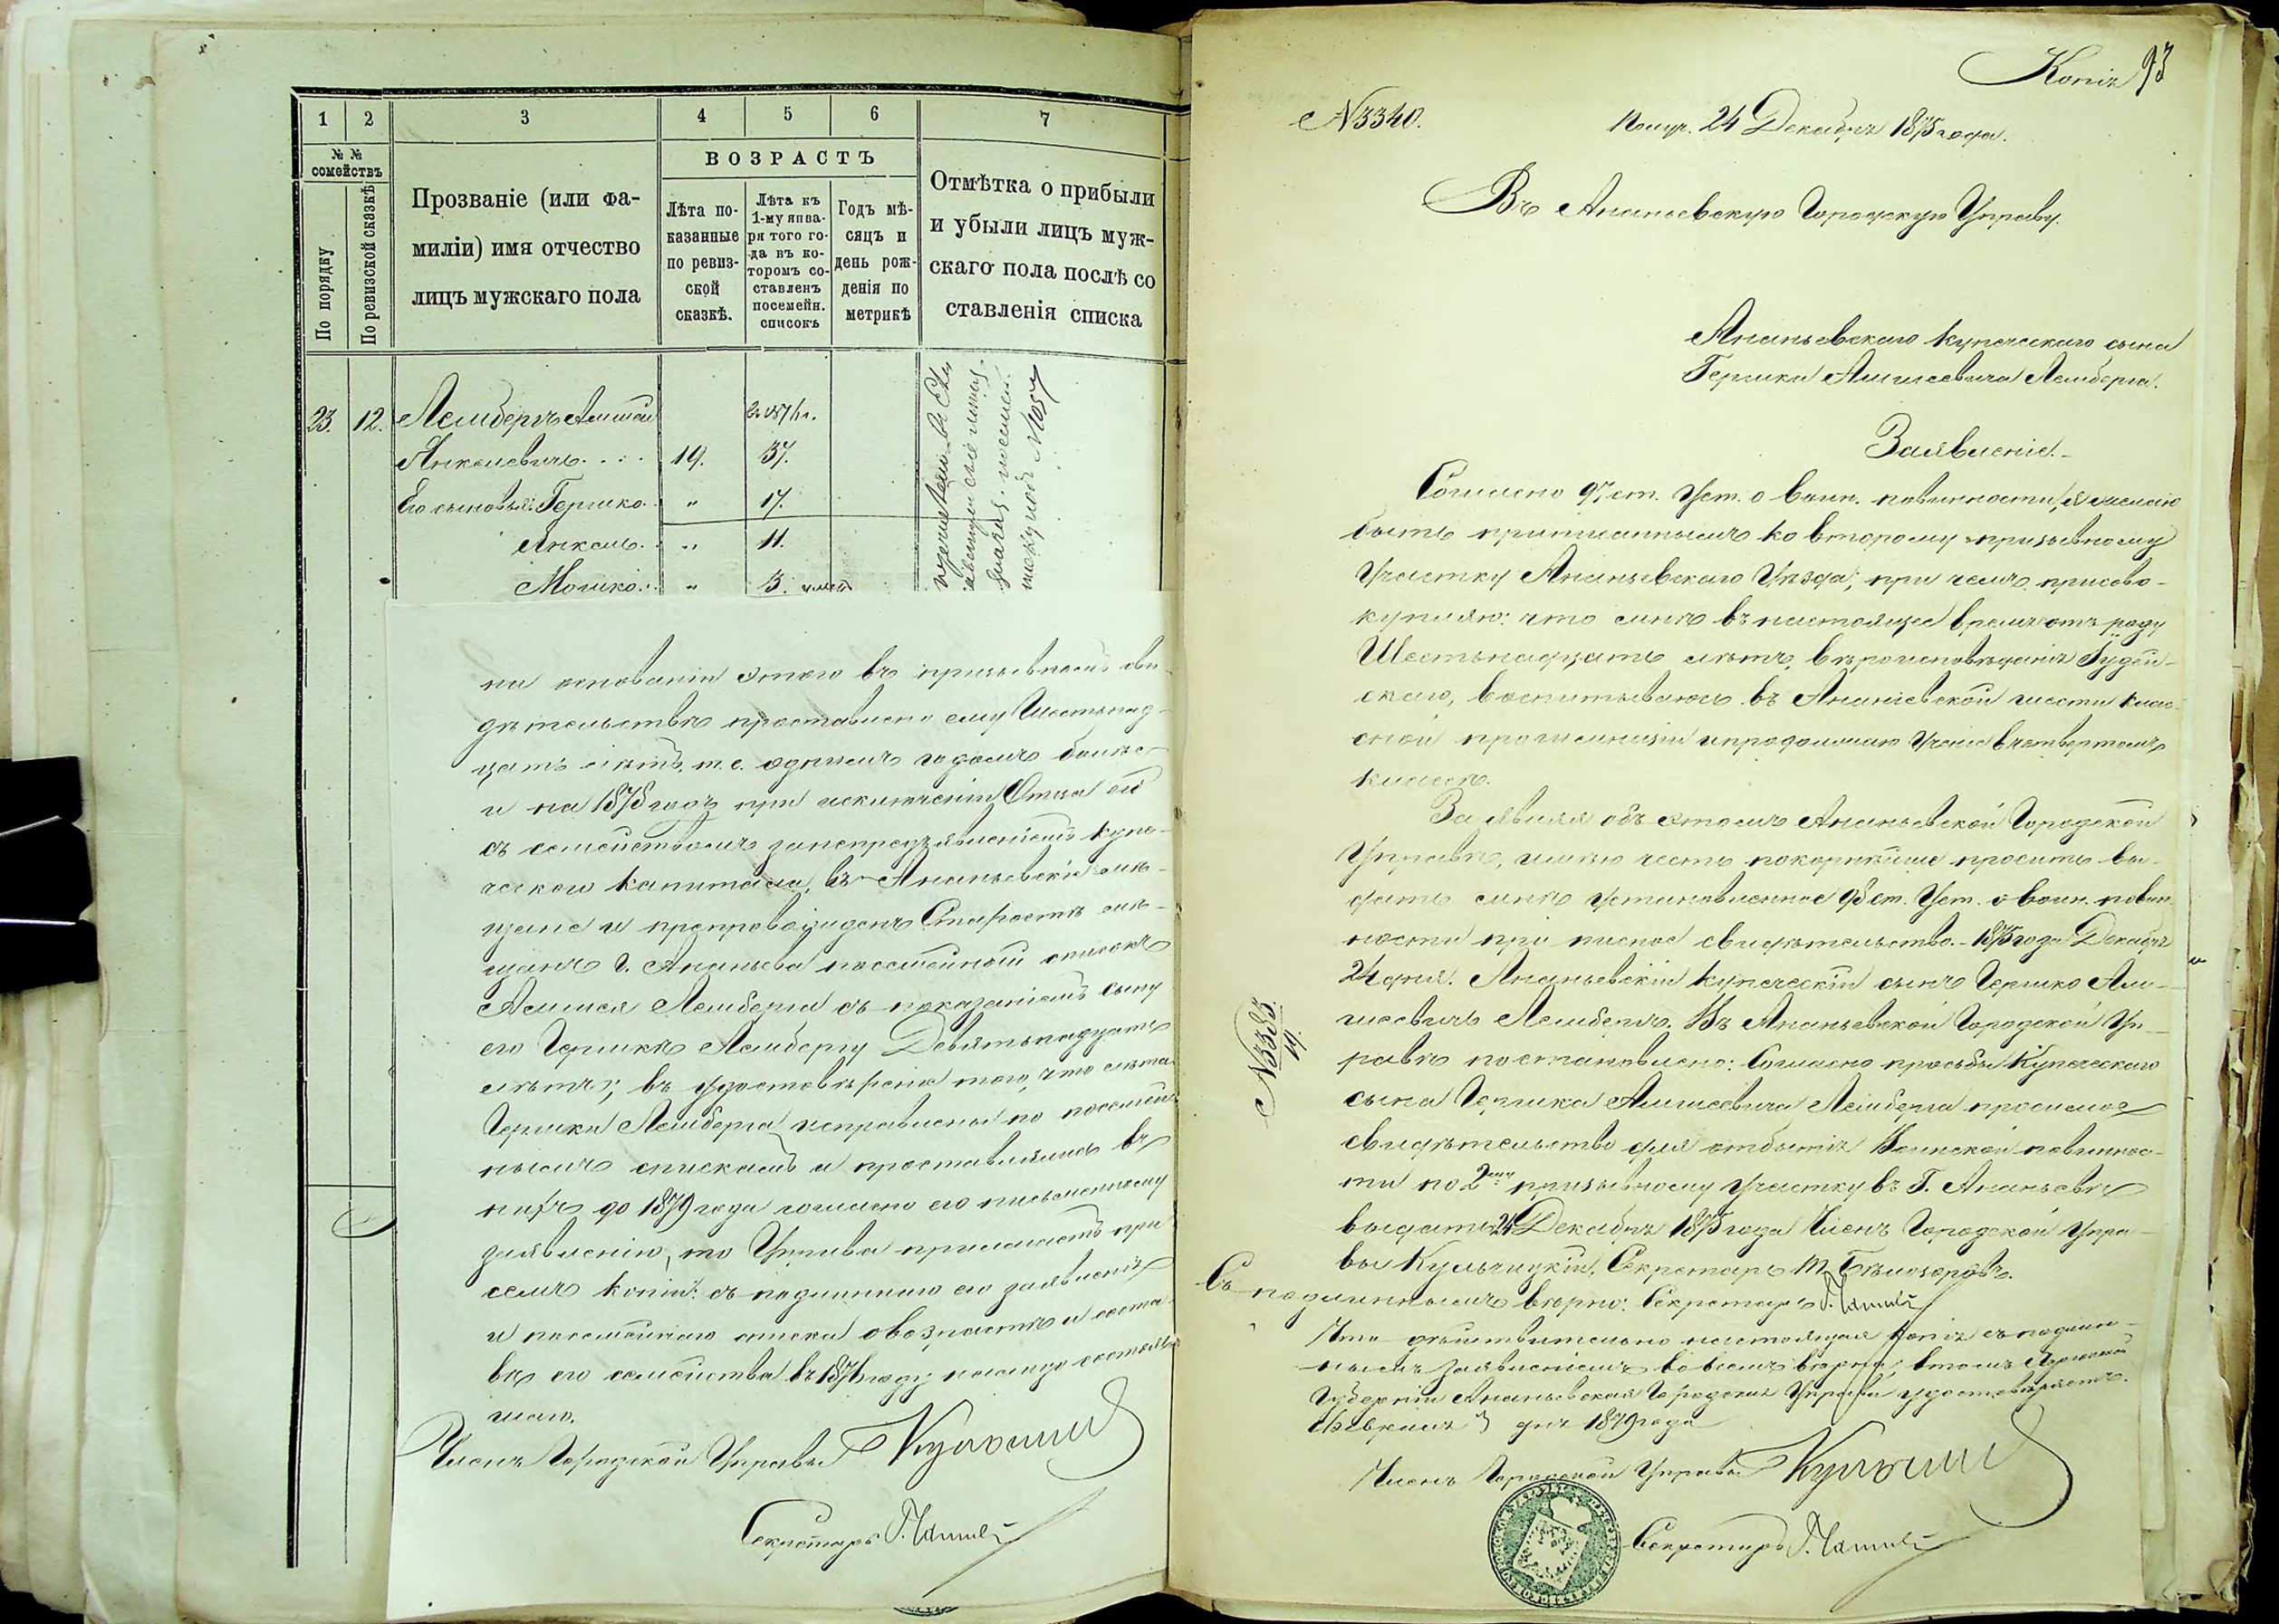 1 2 3 4 5 6 7
№ № семействъ
По порядку
По ревизской сказкѣ
Прозваніе (или фа-
миліи) имя отчество
лицъ мужскаго пола
ВОЗРАСТЪ
Лѣта по-
казанные
по ревиз-
ской
сказкѣ.
Лѣта къ
1-му янва-
ря того го-
да въ ко-
торомъ со-
ставленъ
посемейн.
списокъ
Годъ мѣ-
сяцъ и
день рож-
денія по
метрикѣ
Отмѣтка о прибыли
и убыли лицъ муж-
скаго пола послѣ со
ставленія списка
23. 12. Лембергъ Амшей
Янкелевичъ . . . 19. 37.
Его сыновья: Гершко. " 17.
Янкель. " 11.
Мошко. " 3.
на основаніи этого въ призывномъ сви-
дѣтельствѣ проставлено ему Шестнад-
цать лѣтъ, т. е. однимъ годомъ болѣе
и на 1878 годъ при исключеніи Отца его
съ семействомъ за непредъявленіемъ купе-
ческаго капитала, въ Ананьевскіе мѣ-
щане и препровожденъ Старостѣ мѣ-
щанъ г. Ананьева посемейный списокъ
Амшея Лемберга съ показаніемъ сыну
его Гершкѣ Лембергу Девятьнадцать
лѣтъ; въ удостовѣреніе того, что лѣта
Гершки Лемберга исправлены по посемей-
нымъ спискамъ и проставлялись въ
нихъ до 1879 года согласно его письменному
заявленію, то Управа прилагаетъ при
семъ копіи: съ подлиннаго его заявленія
и посемейнаго списка о возрастѣ и соста-
вѣ его семейства въ 1876 году
Членъ Городской Управы
Секретарь
Копія 93
№ 3340. Получ. 24 Декабря 1875 года.
Въ Ананьевскую Городскую Управу.
Ананьевскаго купеческаго сына
Гершки Амшеевича Лемберга.
Заявленіе.
Согласно 97 ст. Уст. о воин. повинности, я желаю
быть приписаннымъ ко второму призывному
Участку Ананьевскаго Уѣзда; при чемъ присово-
купляю: что мнѣ въ настоящее время отъ роду
Шестьнадцать лѣтъ, вѣроисповѣданія Іудей-
скаго, воспитываюсь въ Ананьевской шести клас-
сной прогимназіи и продолжаю ученіе въ четвертомъ
классѣ.
Заявляя объ этомъ Ананьевской Городской
Управѣ, имѣю честь покорнѣйше просить вы-
дать мнѣ установленное 98 ст. Уст. о воин. повин-
ности при писное свидѣтельство. - 1875 года Декабря
24 дня. Ананьевскій купеческій сынъ Гершко Ам-
шеевичъ Лембергъ. Въ Ананьевской Городской Уп-
равѣ постановлено: Согласно просьбы Купеческаго
сына Гершка Амшеевича Лемберга просимое
свидѣтельство для отбытія Воинской повиннос-
ти по 2му призывному участку въ Г. Ананьевѣ
выдать 24 Декабря 1875 года Членъ Городской Упра-
вы Кульчицкій, Секретарь М. Бѣлозеровъ.
Съ подлиннымъ вѣрно: Секретарь
Что дѣйствительно настоящая копія съ подлин-
нымъ заявленіемъ во всемъ вѣрна, въ томъ Херсонской
Губерніи Ананьевская Городская Управа удостовѣряетъ.
Февраля 3 дня 1879 года
Членъ Городской Управы
Секретарь